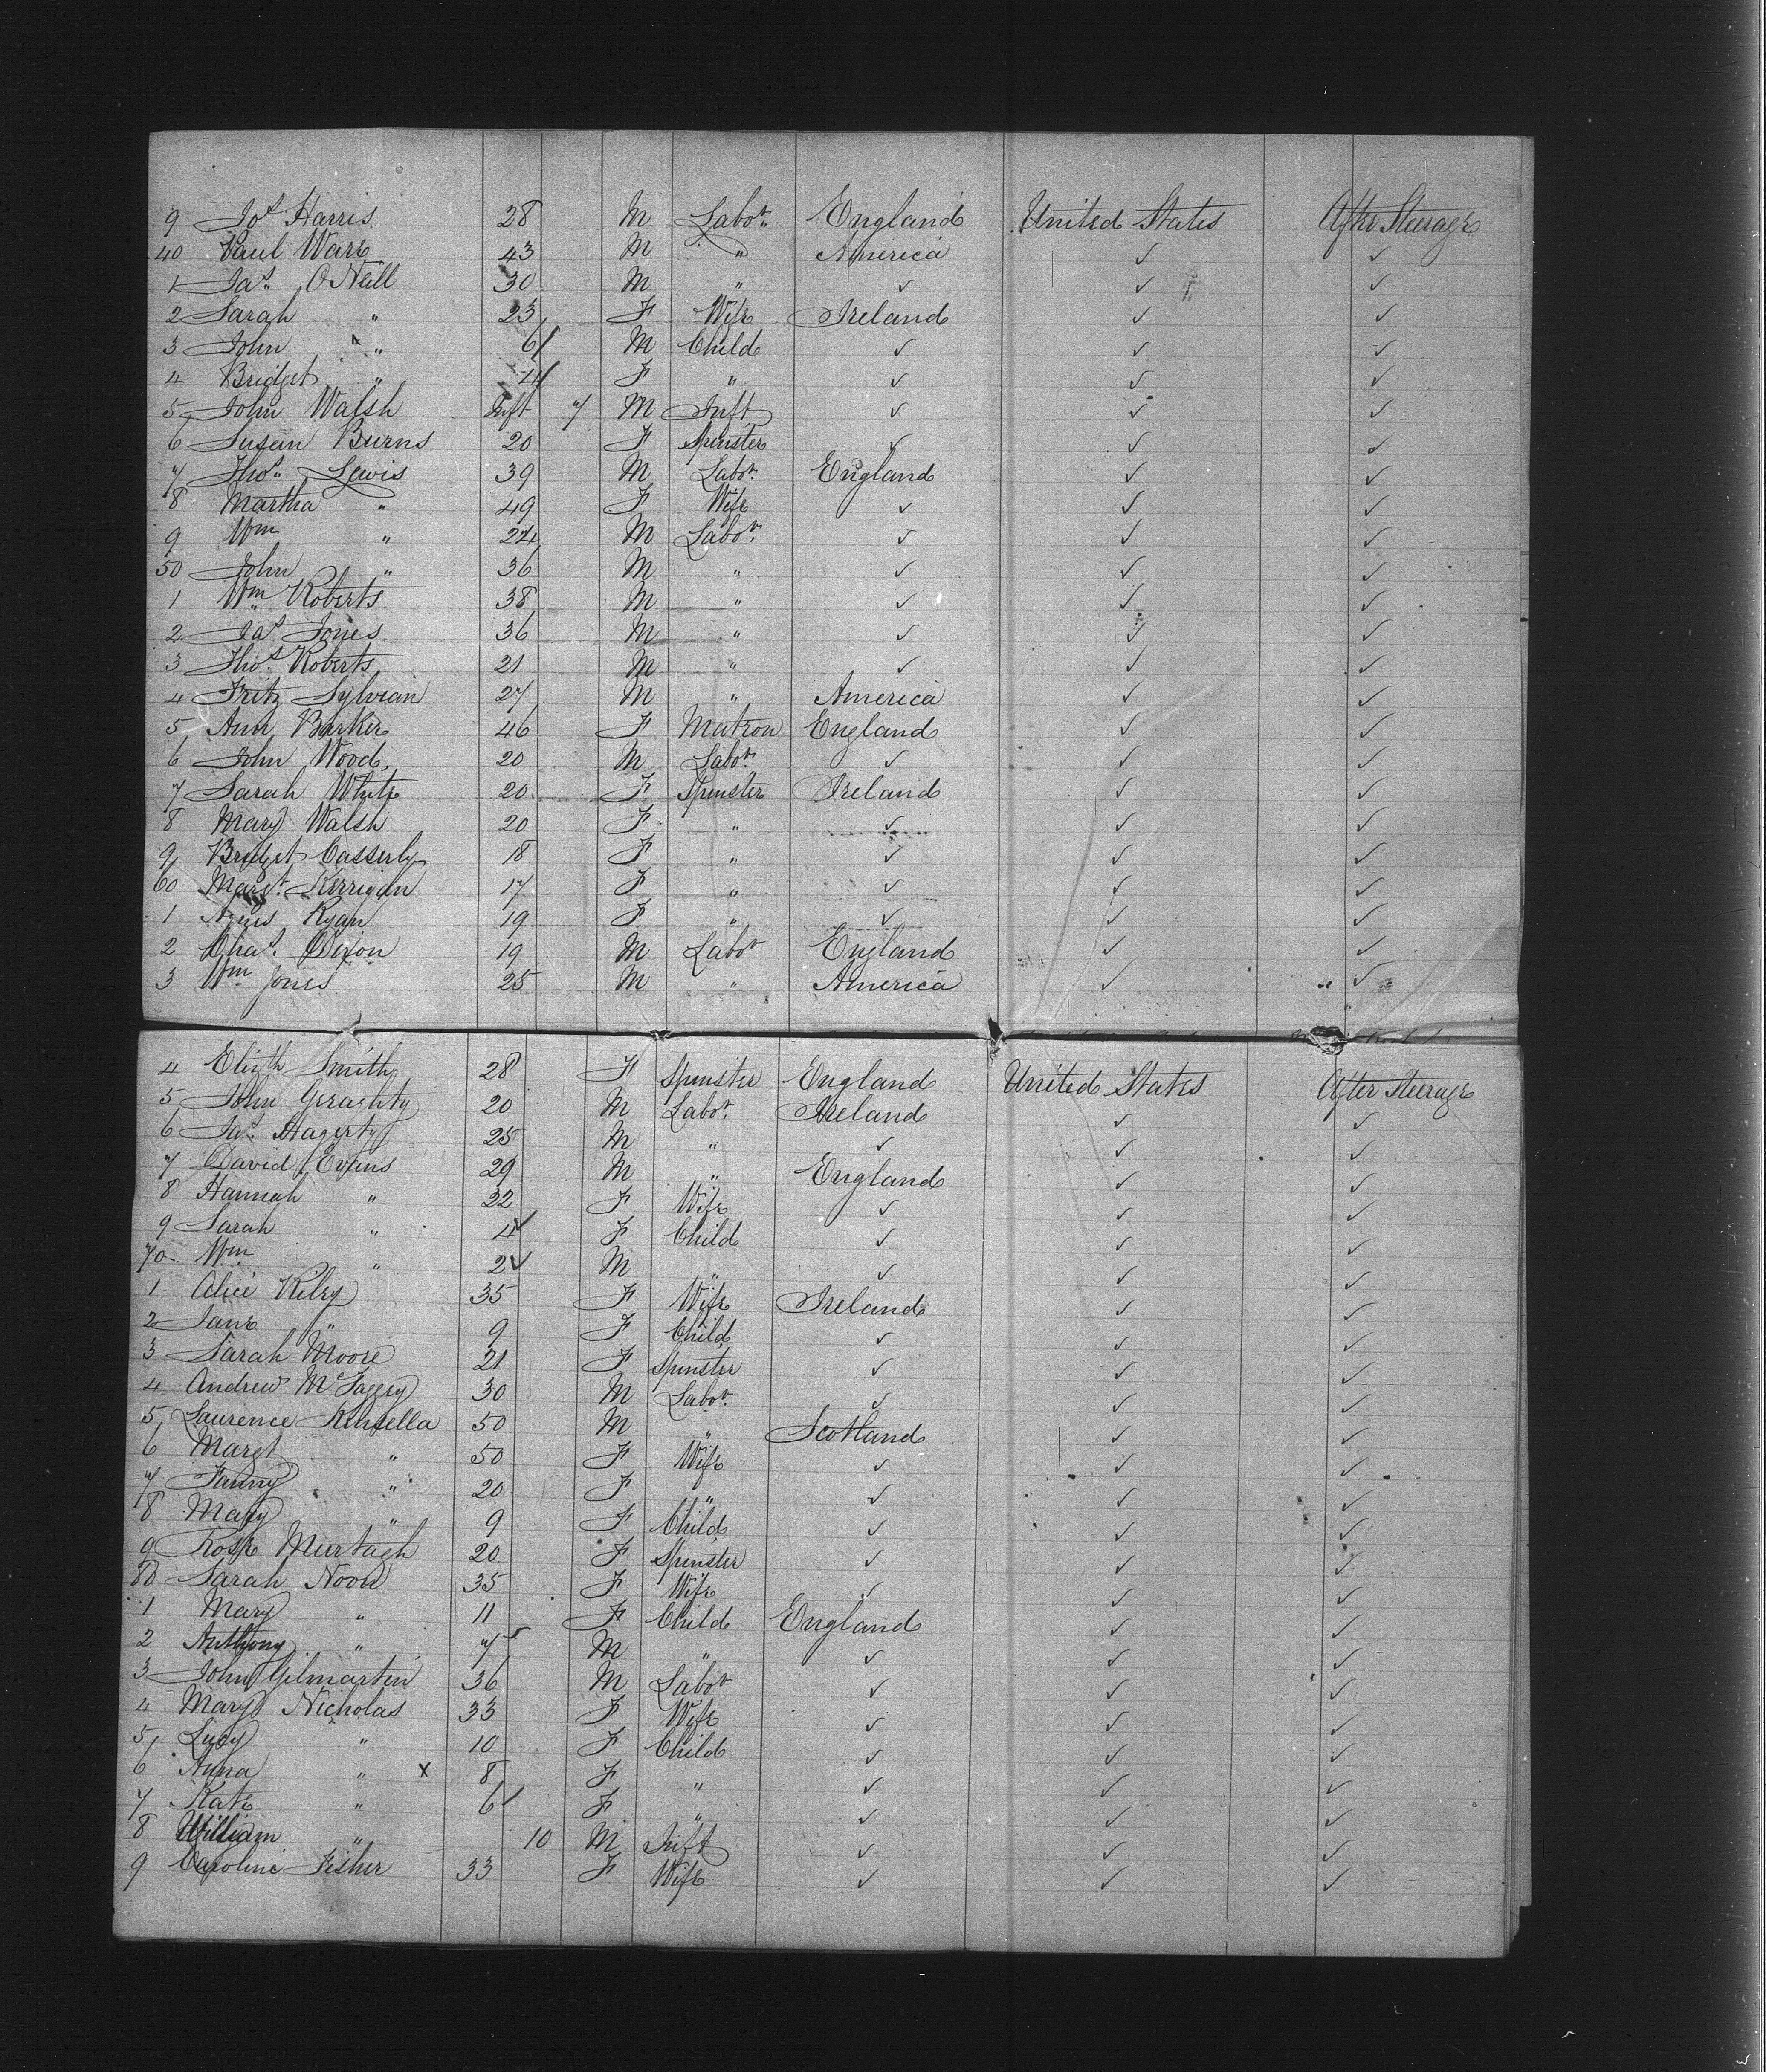 9 Jos Harris 28 M Labor. England United States After Steerage
40 Paul Ware 43 M " America ✓ ✓
1 Jas. O'Neill 30 M " ✓ ✓ ✓
2 Sarah " 23 F Wife Ireland ✓ ✓
3 John " 6 M Child ✓ ✓ ✓
4 Bridget " 4 F " ✓ ✓ ✓
5 John Walsh Inft 7 M Inft ✓ ✓ ✓
6 Susan Burns 20 F Spinster ✓ ✓ ✓
7 Thos. Lewis 39 M Labor. England ✓ ✓
8 Martha " 49 F Wife ✓ ✓ ✓
9 Wm " 24 M Labor. ✓ ✓ ✓
50 John " 36 M " ✓ ✓ ✓
1 Wm Roberts 38 M " ✓ ✓ ✓
2 Jas Jones 36 M " ✓ ✓ ✓
3 Thos. Roberts 21 M " ✓ ✓ ✓
4 Fritz Sylvian 27 M " America ✓ ✓
5 Ann Barker 46 F Matron England ✓ ✓
6 John Wood 20 M Labor. ✓ ✓ ✓
7 Sarah White 20 F Spinster Ireland ✓ ✓
8 Mary Walsh 20 F " ✓ ✓ ✓
9 Bridget Casserly 18 F " ✓ ✓ ✓
60 Margt. Kerrigan 17 F " ✓ ✓ ✓
1 Agnus Ryan 19 F " ✓ ✓ ✓
2 Chas. Dixon 19 M Labor England ✓ ✓
3 Wm Jones 25 M " America ✓ ✓
4 Elizth Smith 28 F Spinster England United States After Steerage
5 John Geraghty 20 M Labor. Ireland ✓ ✓
6 Jas. Hagerty 25 M " ✓ ✓ ✓
7 David Evans 29 M " England ✓ ✓
8 Hannah " 22 F Wife ✓ ✓ ✓
9 Sarah " 4 F Child ✓ ✓ ✓
70 Wm " 2 M " ✓ ✓ ✓
1 Alice Riley 35 F Wife Ireland ✓ ✓
2 Jane " 9 F Child ✓ ✓ ✓
3 Sarah Moore 21 F Spinster ✓ ✓ ✓
4 Andrew 30 M Labor. ✓ ✓ ✓
5 Laurence Kinsella 50 M " Scotland ✓ ✓
6 Margt " 50 F Wife ✓ ✓ ✓
7 Fanny " 20 F " ✓ ✓ ✓
8 Mary " 9 F Child ✓ ✓ ✓
9 Rose Murtagh 20 F Spinster ✓ ✓ ✓
80 Sarah 35 F Wife ✓ ✓ ✓
1 Mary " 11 F Child England ✓ ✓
2 Anthony " 7 M " ✓ ✓ ✓
3 John Gilmartin 36 M Labor ✓ ✓ ✓
4 Mary Nicholas 33 F Wife ✓ ✓ ✓
5 Lucy " 10 F Child ✓ ✓ ✓
6 Anna " x 8 F " ✓ ✓ ✓
7 Kate " 6 F " ✓ ✓ ✓
8 William " 10 M Inft ✓ ✓ ✓
9 Caroline Fisher 33 F Wife ✓ ✓ ✓